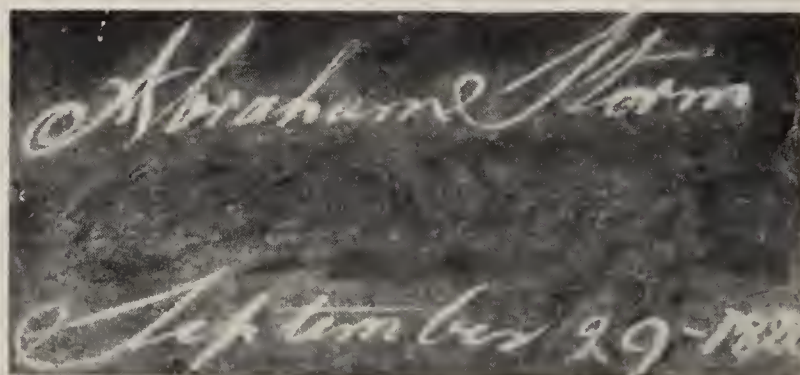 Abraham Storm
September 29